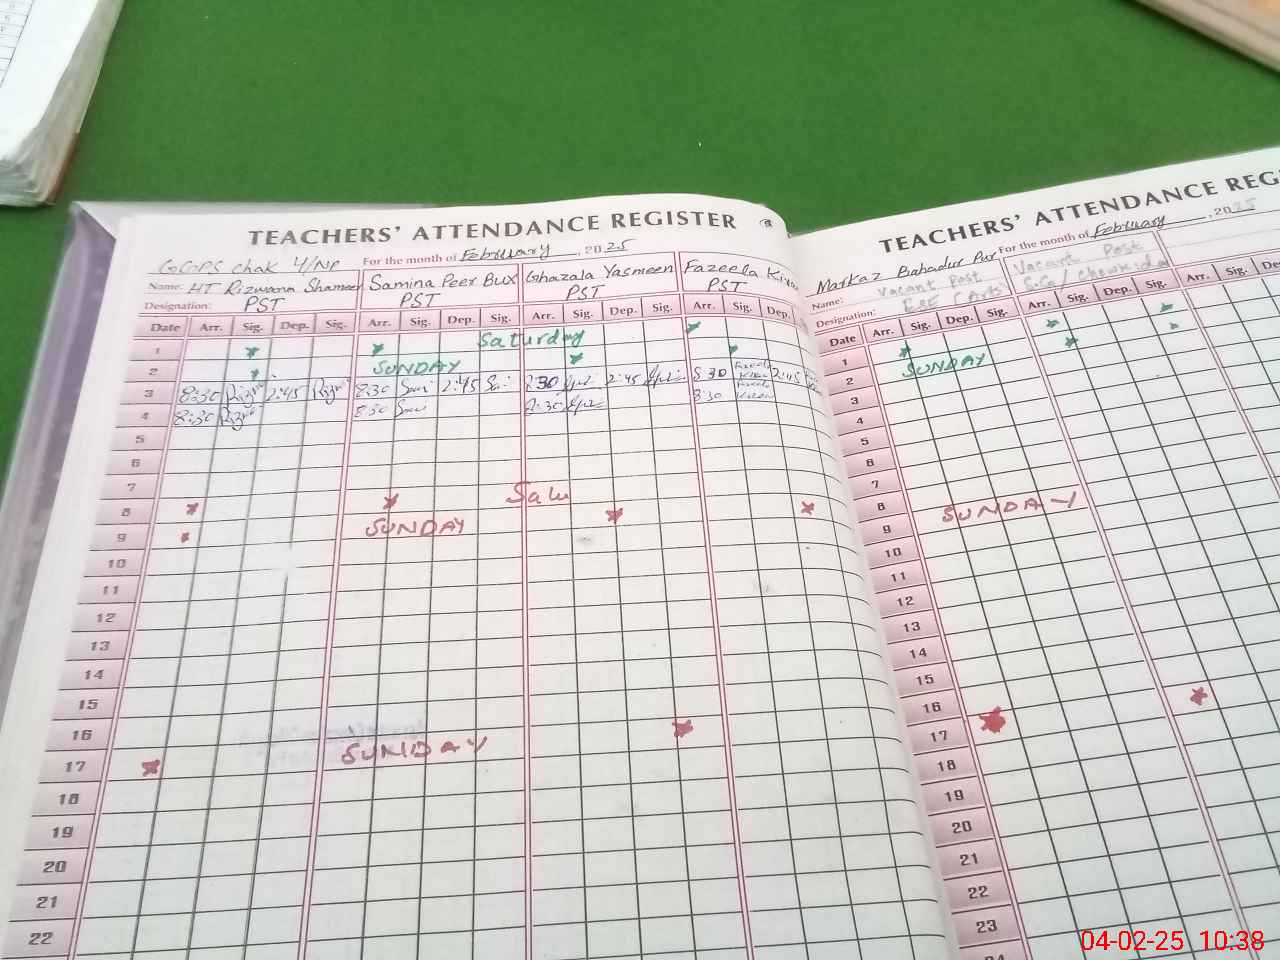 TEACHERS' ATTENDANCE REGISTER
GGPS Chak 4/NP For the month of February, 2025
Name: HT Rizwana Shameer Samina Peer Bux Ghazala Yasmeen Fazeela Kiran
Designation: PST PST PST PST
Date Arr. Sig. Dep. Sig. Arr. Sig. Dep. Sig. Arr. Sig. Dep. Sig. Arr. Sig. Dep.
1 Saturday
2 SUNDAY
3 8:30 2:45 8:30 2:45 8:30 2:45 8:30 Fazeela Kiran 2:45
4 8:30 8:30 8:30 8:30 Fazeela Kiran
5
6
7
8 Satu
9 SUNDAY
10
11
12
13
14
15
16 SUNDAY
17
18
19
20
21
22
TEACHERS' ATTENDANCE REG
Markaz Bahadur Pur For the month of February, 2025
Name: Vacant Post Vacant Post
Designation: ESE (Arts) Chowkidar
Date Arr. Sig. Dep. Sig. Arr. Sig. Dep. Sig. Arr. Sig. Dep.
1
2 SUNDAY
3
4
5
6
7
8
9 SUNDAY
10
11
12
13
14
15
16
17
18
19
20
21
22
23
24
04-02-25 10:38